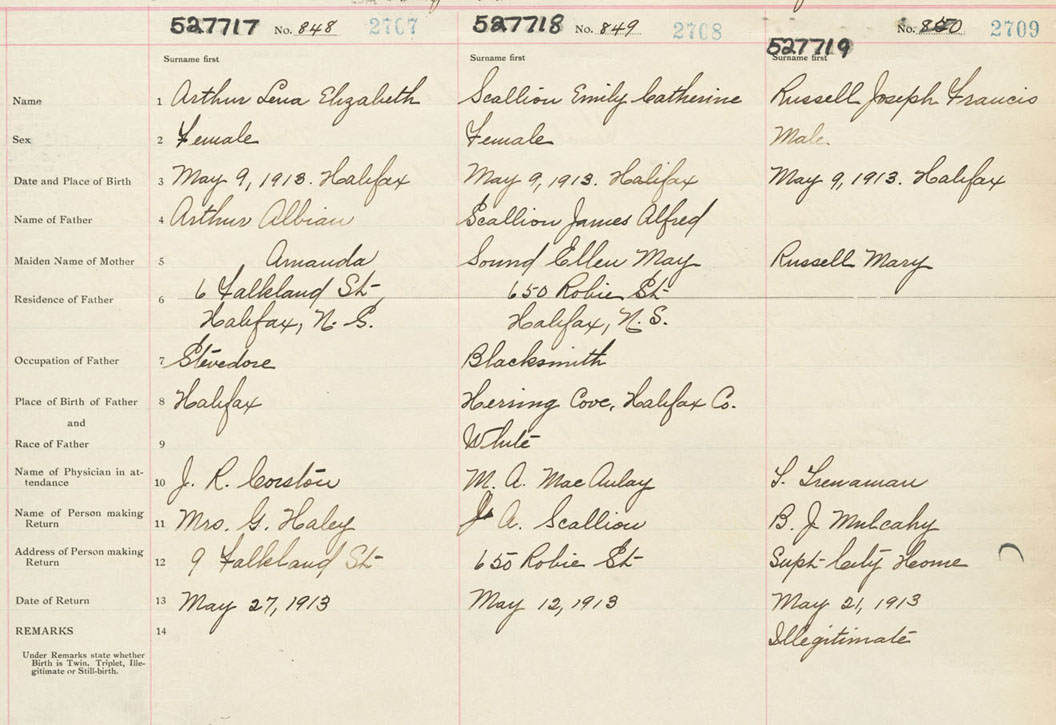 527717 No. 848 2707 527718 No. 849 2708 527719 No. 850 2709
Surname first Surname first Surname first
Name 1 Arthur Lena Elizabeth Scallion Emily Catherine Russell Joseph Francis
Sex 2 Female Female Male
Date and Place of Birth 3 May 9, 1913. Halifax May 9, 1913. Halifax May 9, 1913. Halifax
Name of Father 4 Arthur Albian Scallion James Alfred
Maiden Name of Mother 5 Amanda Sound Ellen May Russell Mary
Residence of Father 6 6 Falkland St 650 Robie St
Halifax, N. S. Halifax, N. S.
Occupation of Father 7 Stevedore Blacksmith
Place of Birth of Father 8 Halifax Herring Cove, Halifax Co.
and
Race of Father 9 White
Name of Physician in at-
tendance 10 J. R. Corston M. A. MacAulay Trenaman
Name of Person making
Return 11 Mrs. G. Haley J. A. Scallion B. J. Mulcahy
Address of Person making
Return 12 9 Falkland St 650 Robie St Supt City Home
Date of Return 13 May 27, 1913 May 12, 1913 May 21, 1913
REMARKS 14 Illegitimate
Under Remarks state whether
Birth is Twin, Triplet, Ille-
gitimate or Still-birth.